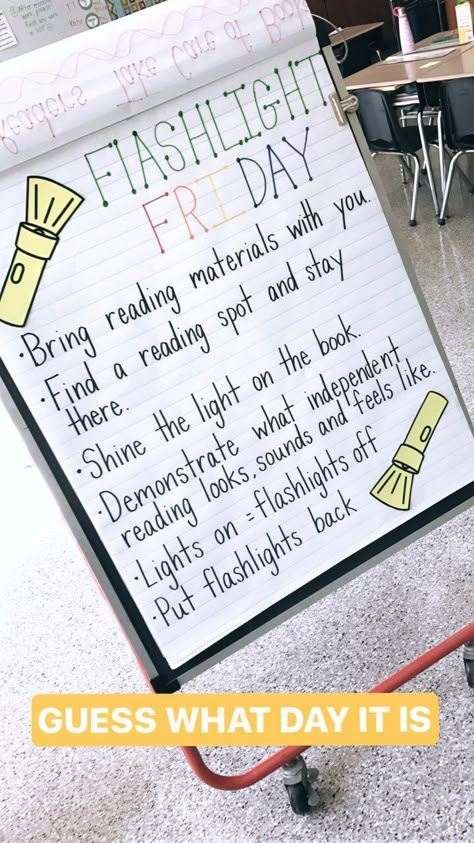 Readers Take Care of Books
FLASHLIGHT
FRIDAY
· Bring reading materials with you.
· Find a reading spot and stay
there.
· Shine the light on the book.
· Demonstrate what independent
reading looks, sounds and feels like.
· Lights on = flashlights off
· Put flashlights back
GUESS WHAT DAY IT IS